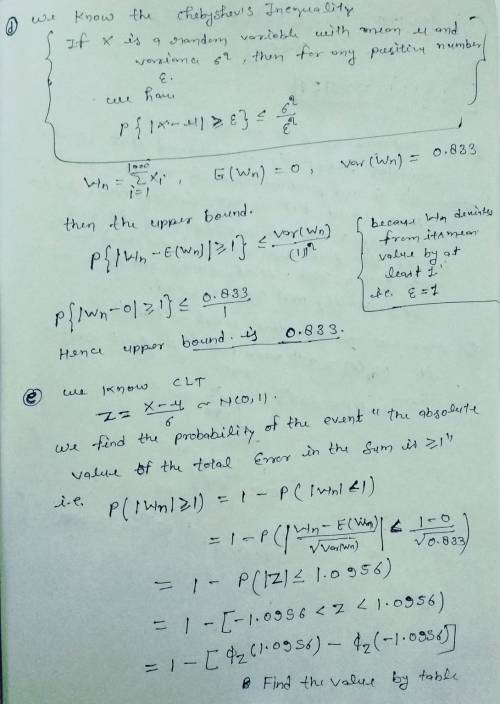 (d) we know the Chebyshev's Inequality
If X is a random variable with mean μ and
variance σ², then for any positive number
ε.
we have
P{|X-μ| ≥ ε} ≤ σ²/ε²
Wn = 1000Σi=1 Xi, E(Wn) = 0, Var(Wn) = 0.833
then the upper bound.
P{|Wn - E(Wn)| ≥ 1} ≤ Var(Wn)/(1)²
because Wn deviates
from its mean
value by at
least 1
i.e. ε = 1
P{|Wn - 0| ≥ 1} ≤ 0.833/1
Hence upper bound is 0.833.
(e) we know CLT
Z = X-μ/σ ~ N(0,1).
we find the probability of the event "the absolute
value of the total Error in the sum is ≥ 1"
i.e. P(|Wn| ≥ 1) = 1 - P(|Wn| < 1)
= 1 - P(|Wn - E(Wn)/√Var(Wn)| < 1-0/√0.833)
= 1 - P(|Z| ≤ 1.0956)
= 1 - [-1.0956 < Z < 1.0956)
= 1 - [ϕz(1.0956) - ϕz(-1.0956)]
Find the value by table